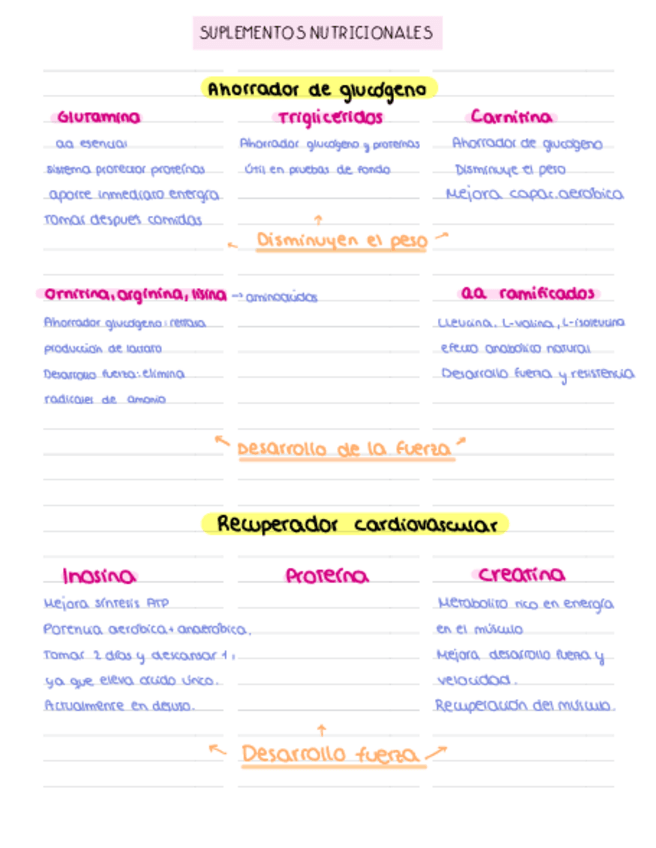 SUPLEMENTOS NUTRICIONALES
Ahorrador de glucógeno
Glutamina
aa esencial
sistema protector proteínas
aporte inmediato energía
Tomar despues comidas
Trigliceridos
Ahorrador glucógeno y proteínas
Útil en pruebas de fondo
Carnitina
Ahorrador de glucógeno
Disminuye el peso
Mejora capac. aerobica
Disminuyen el peso
Ornitina, arginina, lisina → aminoácidos
Ahorrador glucógeno: retrasa
producción de lactato
Desarrollo fuerza: elimina
radicales de amonio
aa ramificados
Lleucina, L-valina, L-isoleucina
efecto anabólico natural
Desarrollo fuerza y resistencia
Desarrollo de la fuerza
Recuperador cardiovascular
Inosina
Mejora síntesis ATP
Potencia aeróbica + anaeróbica.
Tomar 2 días y descansar 1,
ya que eleva ácido único.
Actualmente en desuso.
Proteína
Creatina
Metabolito rico en energía
en el músculo
Mejora desarrollo fuerza y
velocidad.
Recuperación del músculo.
Desarrollo fuerza